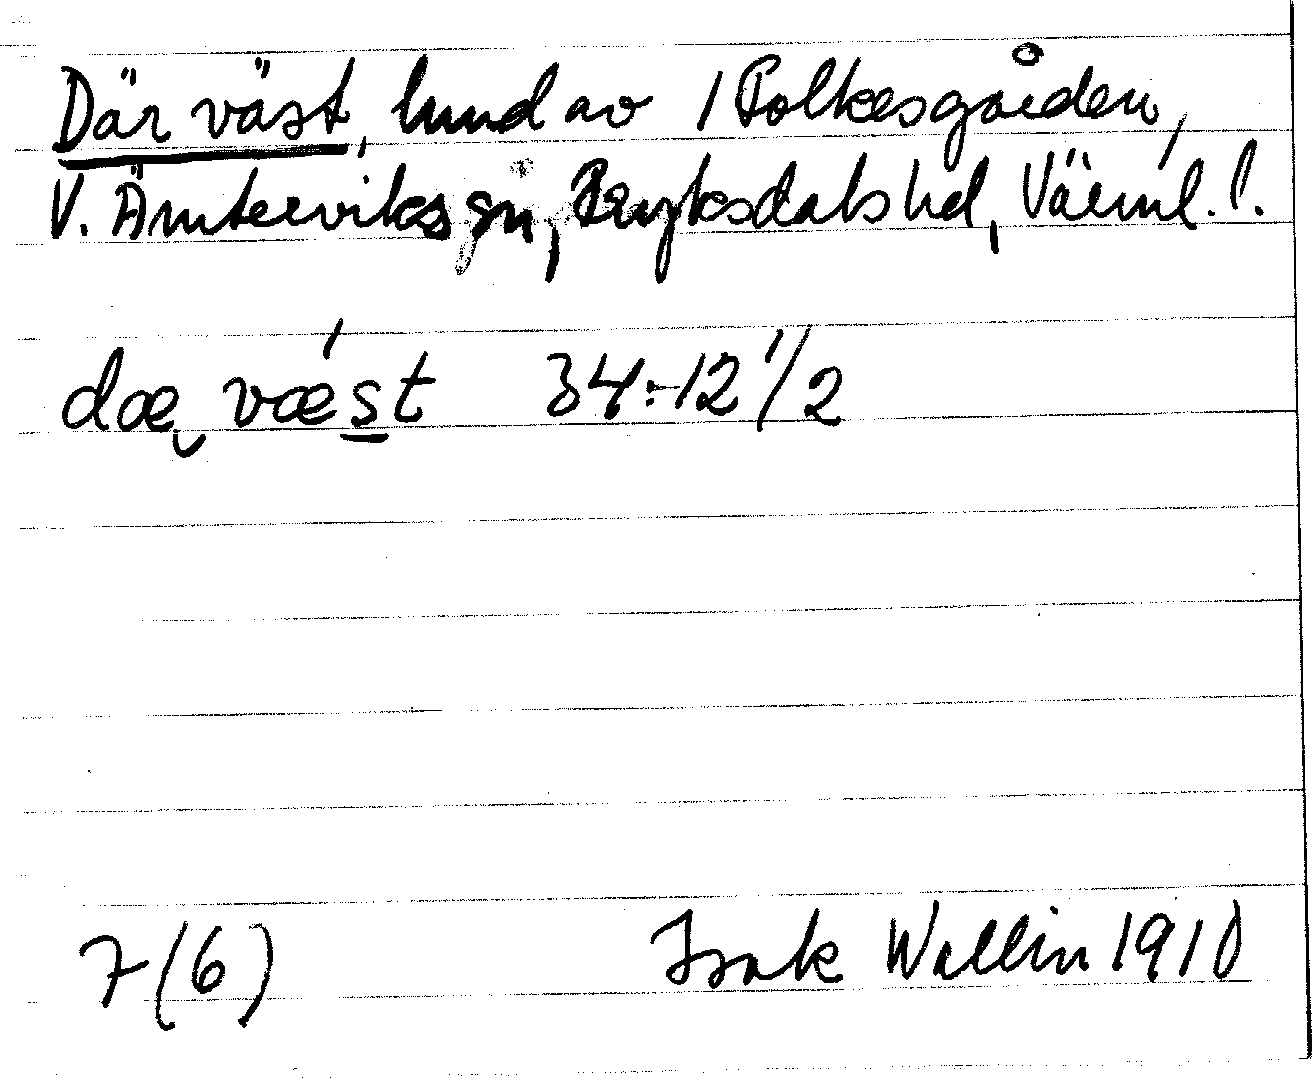 Där väst, hmd av 1 Polkesgården,
V. Ämterviks sn, Fryksdals hd, Värml. l.
dæ vǽst 34:-12 1/2
7(6) Isak Wallin 1910